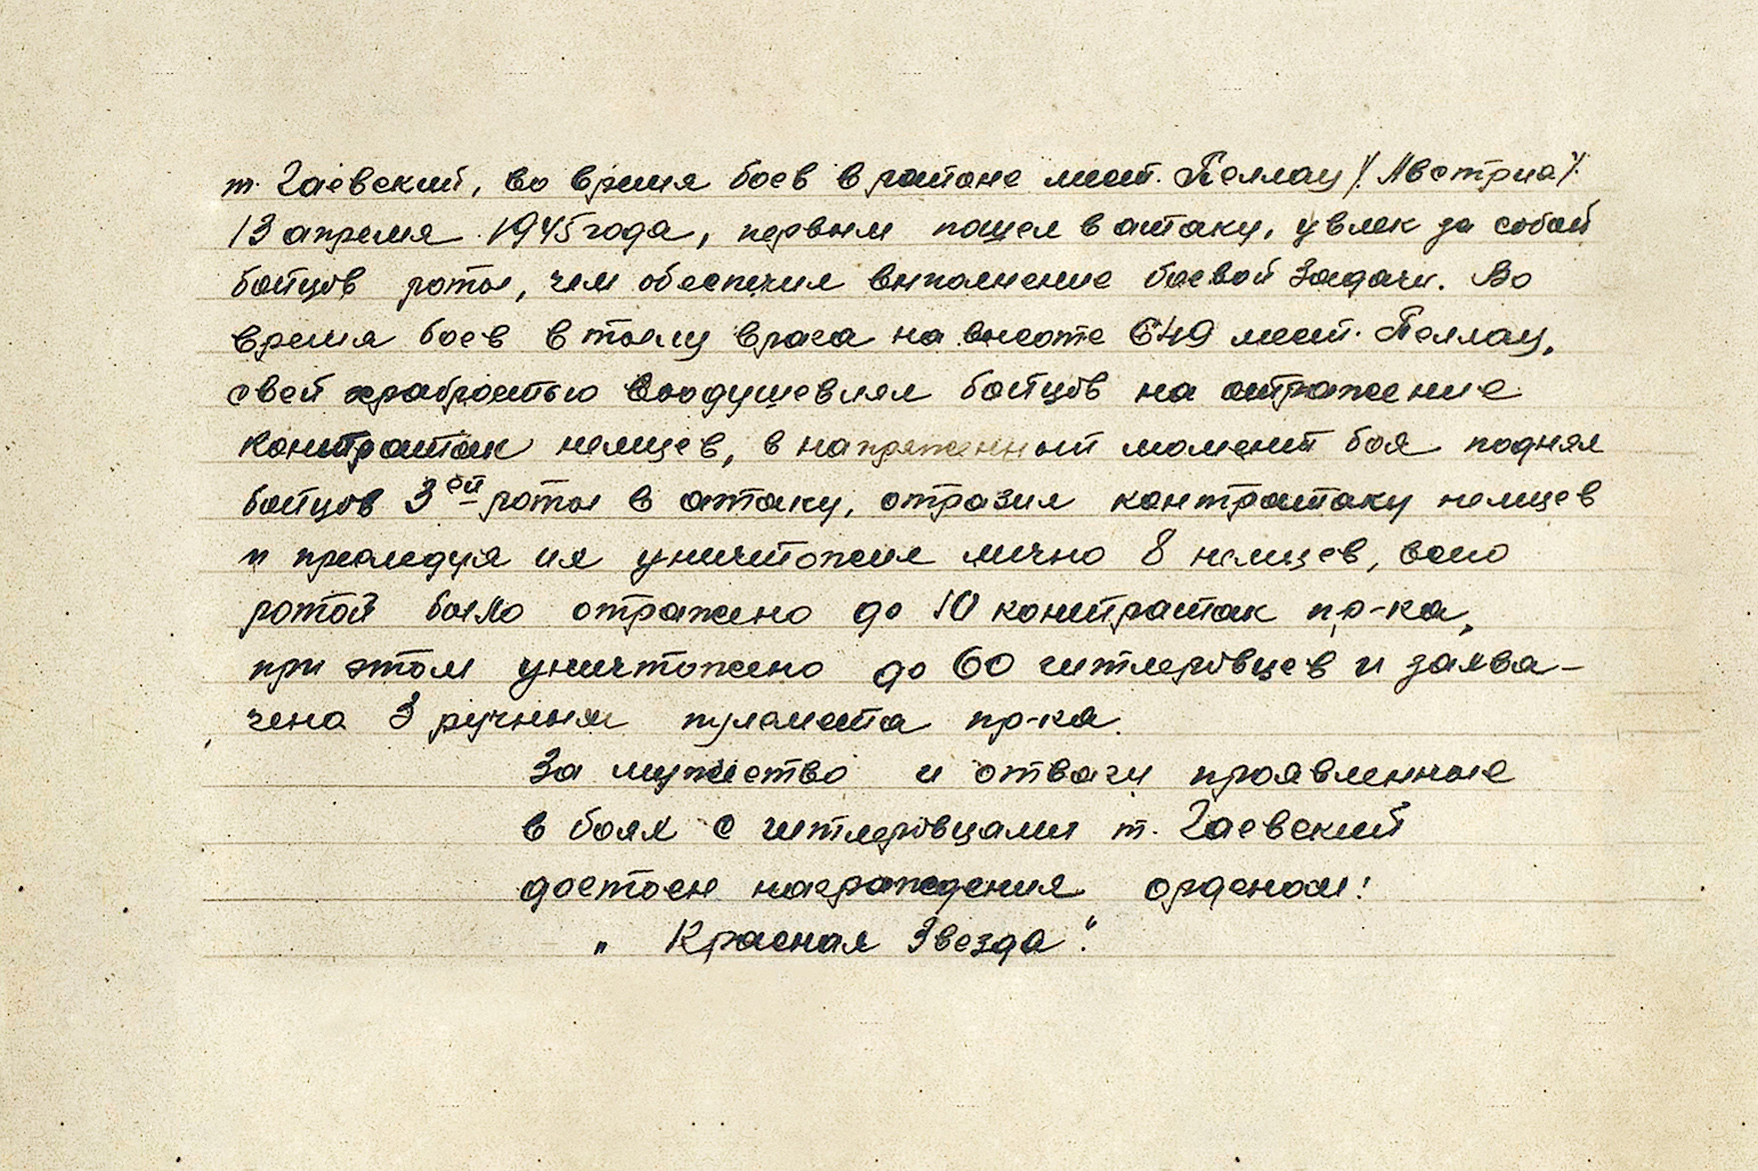 т. Гаевский, во время боев в районе мест. Пеллау /Австрия/.
13 апреля 1945 года, первым пошел в атаку, увлек за собой
бойцов роты, чем обеспечил выполнение боевой задачи. Во
время боев в тылу врага на высоте 649 мест. Пеллау,
свей храбростью воодушевлял бойцов на отражение
контратак немцев, в напряженный момент боя поднял
бойцов 3ей роты в атаку, отразил контратаку немцев
и преследуя их уничтожил лично 8 немцев, всего
ротой было отражено до 10 контратак пр-ка,
при этом уничтожено до 60 гитлеровцев и захва-
чено 3 ручных пулемета пр-ка.
За мужество и отвагу проявленные
в боях с гитлеровцами т. Гаевский
достоен награждения орденом:
„Красная Звезда".